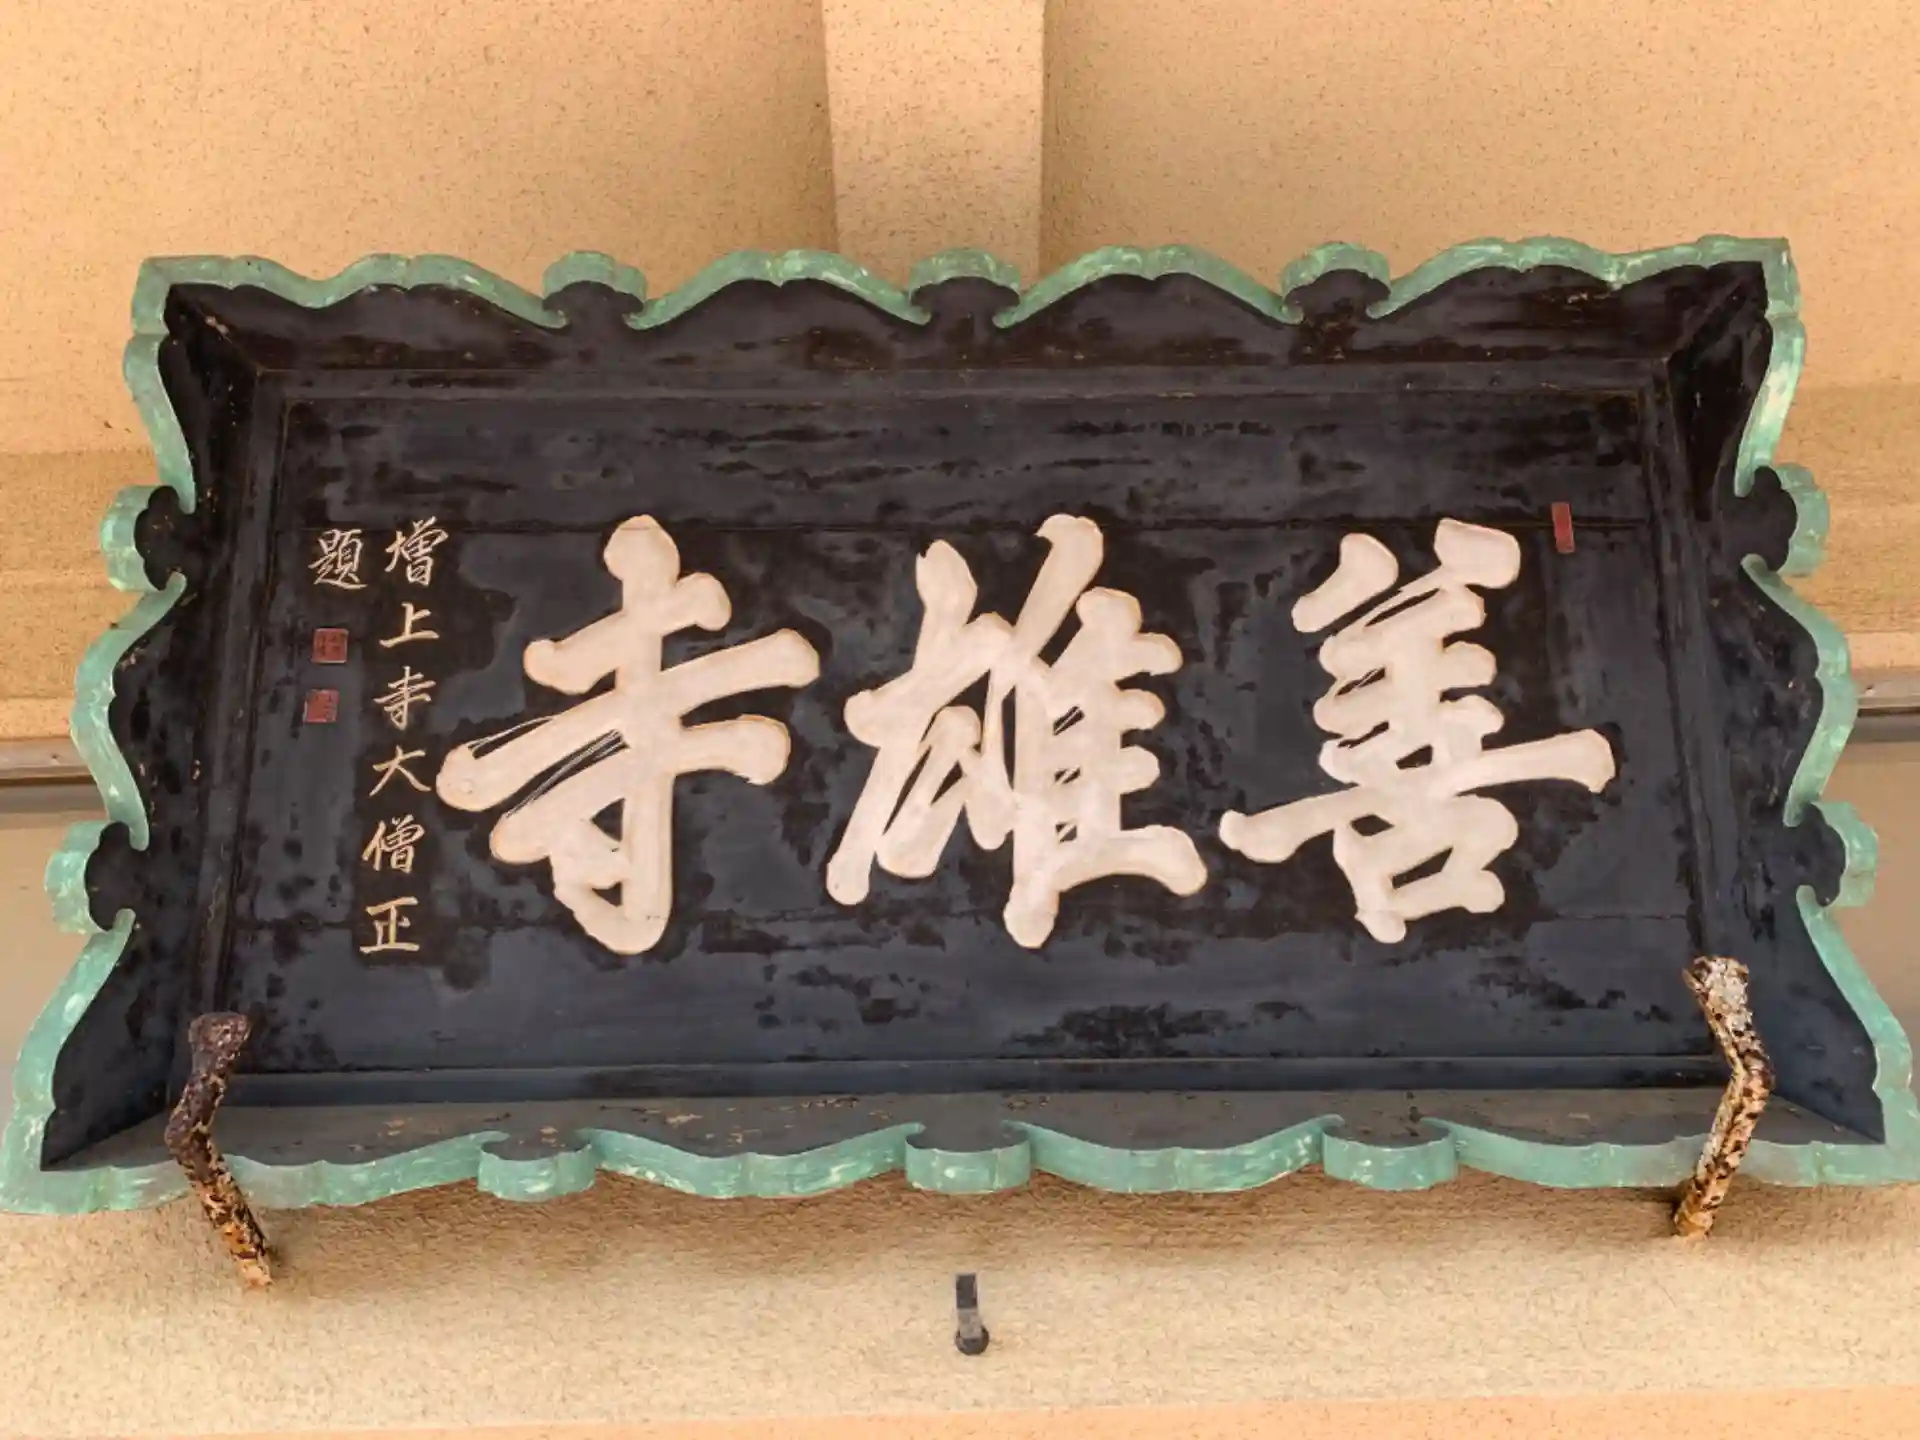 善雄寺
増上寺大僧正
題